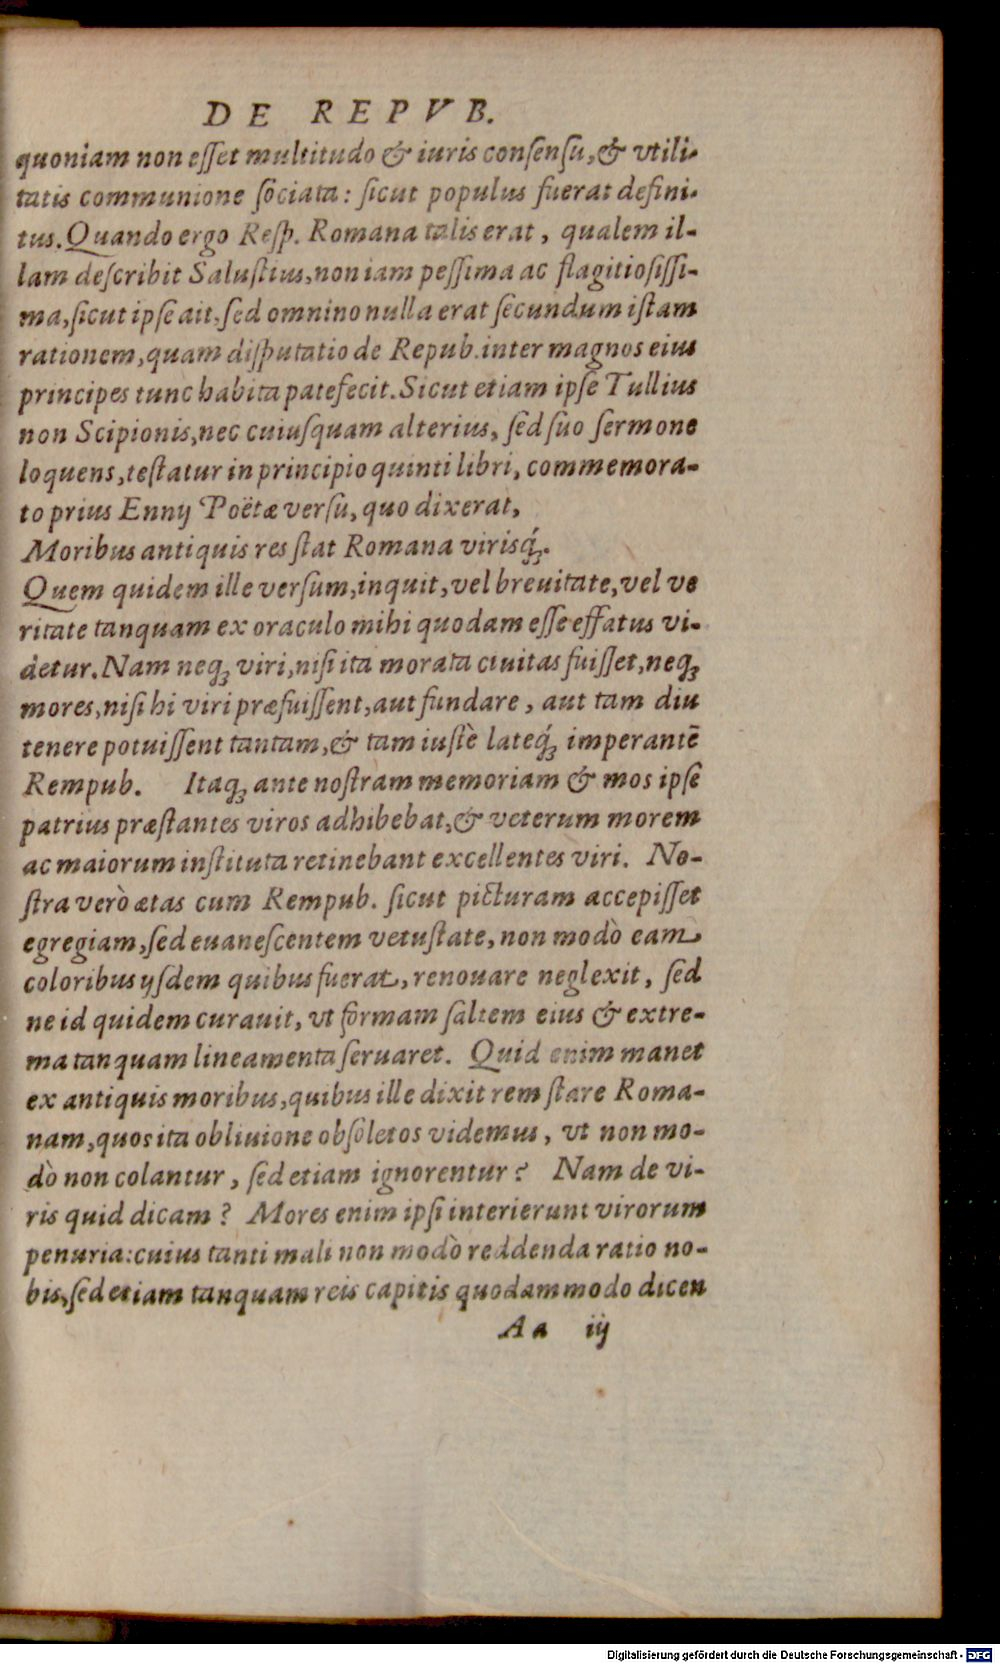 DE REPVB.
quoniam non esset multitudo & iuris consensu, & vtili-
tatis communione sociata: sicut populus fuerat defini-
tus. Quando ergo Resp. Romana talis erat, qualem il-
lam describit Salustius, non iam pessima ac flagitiosissi-
ma, sicut ipse ait, sed omnino nulla erat secundum istam
rationem, quam disputatio de Repub. inter magnos eius
principes tunc habita patefecit. Sicut etiam ipse Tullius
non Scipionis, nec cuiusquam alterius, sed suo sermone
loquens, testatur in principio quinti libri, commemora-
to prius Ennij Poëtæ versu, quo dixerat,
Moribus antiquis res stat Romana virisq́;.
Quem quidem ille versum, inquit, vel breuitate, vel ve
ritate tanquam ex oraculo mihi quodam esse effatus vi-
detur. Nam neq; viri, nisi ita morata ciuitas fuisset, neq;
mores, nisi hi viri præfuissent, aut fundare, aut tam diu
tenere potuissent tantam, & tam iustè lateq́; imperantē
Rempub. Itaq; ante nostram memoriam & mos ipse
patrius præstantes viros adhibebat, & veterum morem
ac maiorum instituta retinebant excellentes viri. No-
stra verò ætas cum Rempub. sicut picturam accepisset
egregiam, sed euanescentem vetustate, non modò eam
coloribus ijsdem quibus fuerat, renouare neglexit, sed
ne id quidem curauit, vt formam saltem eius & extre-
ma tanquam lineamenta seruaret. Quid enim manet
ex antiquis moribus, quibus ille dixit rem stare Roma-
nam, quos ita obliuione obsoletos videmus, vt non mo-
dò non colantur, sed etiam ignorentur? Nam de vi-
ris quid dicam? Mores enim ipsi interierunt virorum
penuria: cuius tanti mali non modò reddenda ratio no-
bis, sed etiam tanquam reis capitis quodammodo dicen
Aa iij
Digitalisierung gefördert durch die Deutsche Forschungsgemeinschaft - DFG